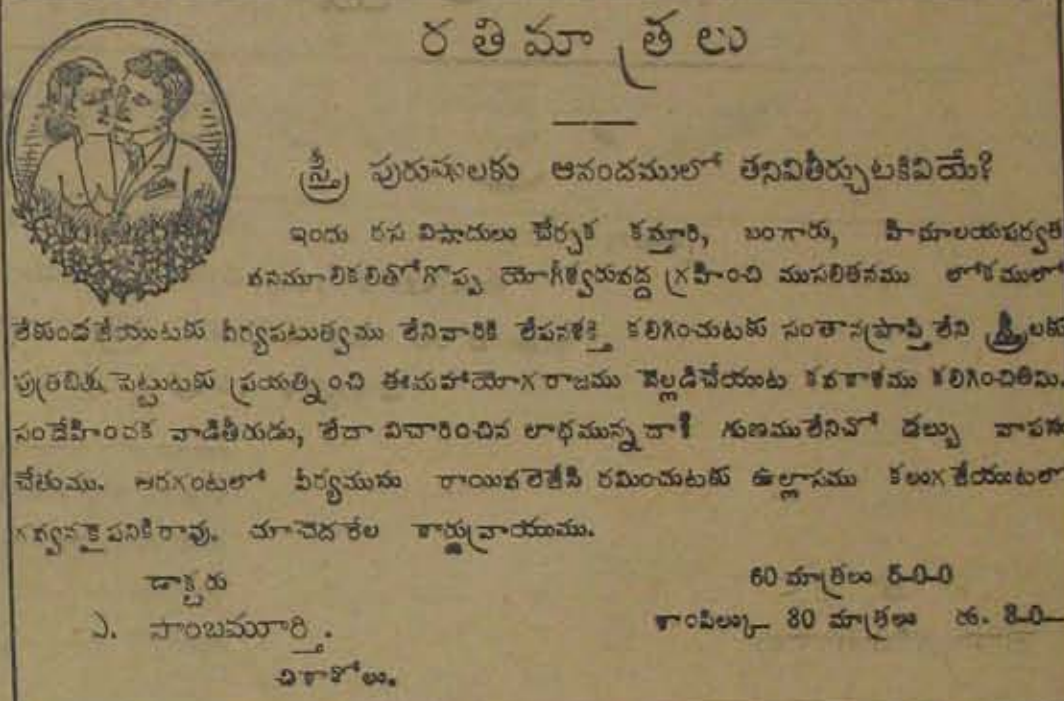 రతిమాత్రలు
స్త్రీ పురుషులకు ఆనందములో తనివితీర్చుటకివియే?
ఇందు రస విషాదులు చేర్చక కస్తూరి, బంగారు, హిమాలయపర్వత
వనమూలికలతోగొప్ప యోగీశ్వరువద్ద గ్రహించి ముసలితనము లోకములో
లేకుండజేయుటకు వీర్యపటుత్వము లేనివారికి లేపనశక్తి కలిగించుటకు సంతానప్రాప్తి లేని స్త్రీలకు
పుత్రబిక్ష పెట్టుటకు ప్రయత్నించి ఈమహాయోగరాజము వెల్లడిచేయుట కవకాశము కలిగించితిమి.
సందేహించక వాడితీరుడు, లేదా విచారించిన లాభమున్నదా? గుణములేనిచో డబ్బు వాపసు
చేతుము. అరగంటలో వీర్యమును రాయివలెజేసి రమించుటకు ఉల్లాసము కలుగజేయుటలో
పనికిరావు. చూచెదరేల కార్డువ్రాయుము.
డాక్టరు
ఎ. సాంబమూర్తి.
చికాకోలు.
60 మాత్రలు 5-0-0
శాంపిల్కు 30 మాత్రలు రు. 3-0-